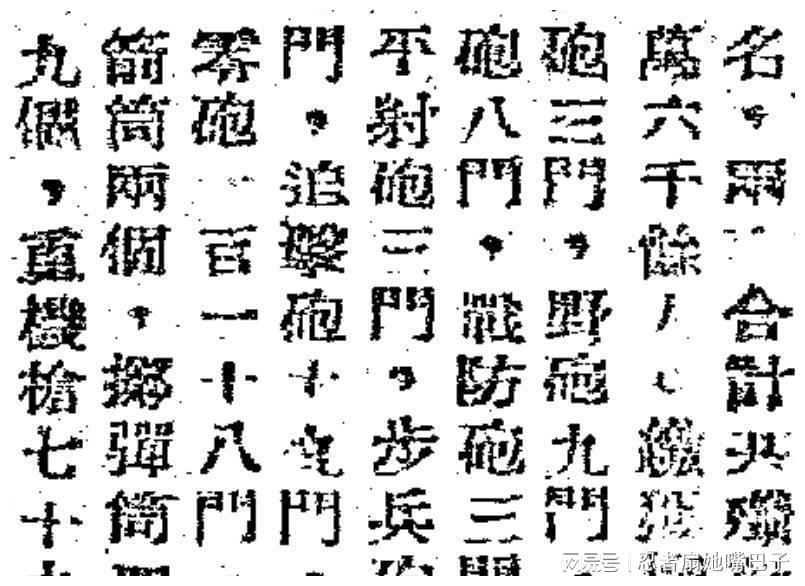 名，兩項合計共殲
萬六千餘人。繳獲
砲三門，野砲九門
砲八門，戰防砲三
平射砲三門，步兵
門，追擊砲十七門
零砲二百一十八門
箭筒兩個，擲彈筒
九個，重機槍七十
搜狐号 | 忍者扇她嘴巴子